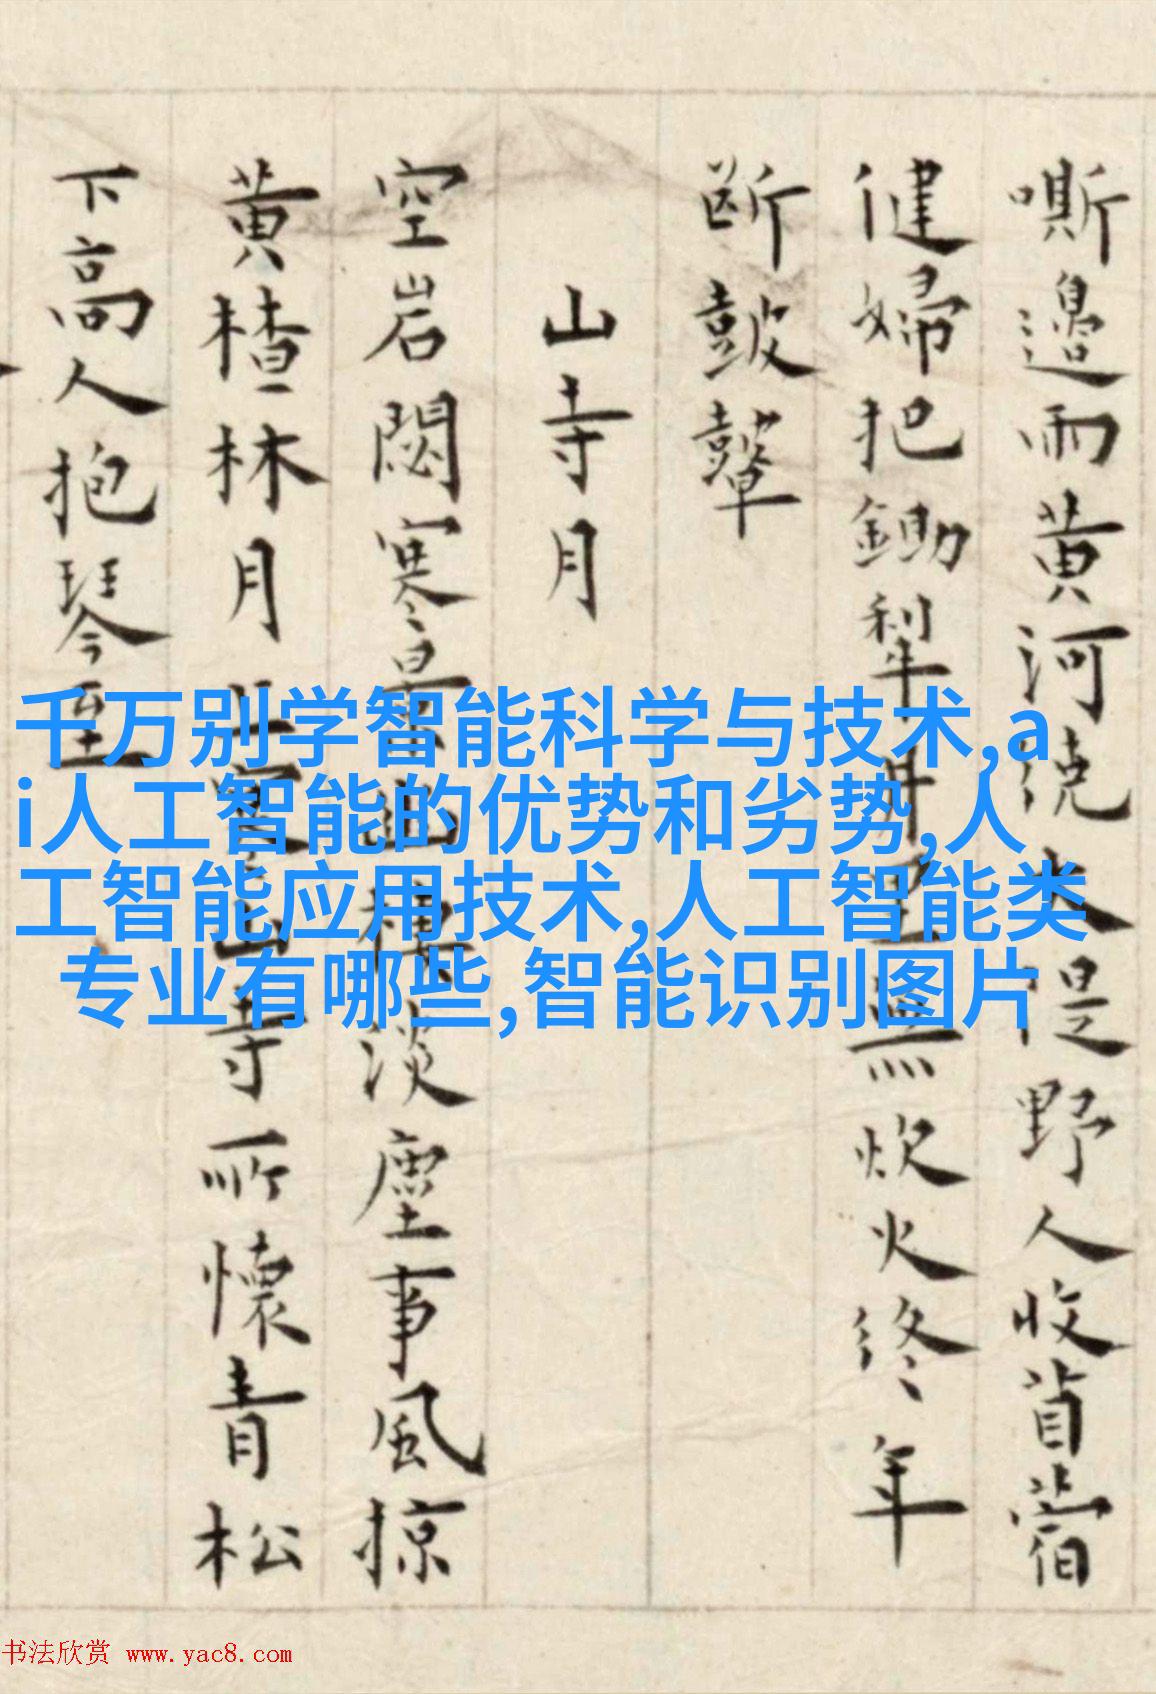 嘶邊雨黄河繞大堤野人收苜蓿
健婦把鋤犁井無炊火終年
断鼓鼙
山寺月
空岩閟寒景山棲淡塵事風掠
黄楂林月上寒山寺所懷青松
下高人抱琴至
千万别学智能科学与技术,a
i人工智能的优势和劣势,人
工智能应用技术,人工智能类
专业有哪些,智能识别图片
书法欣赏 www.yac8.com